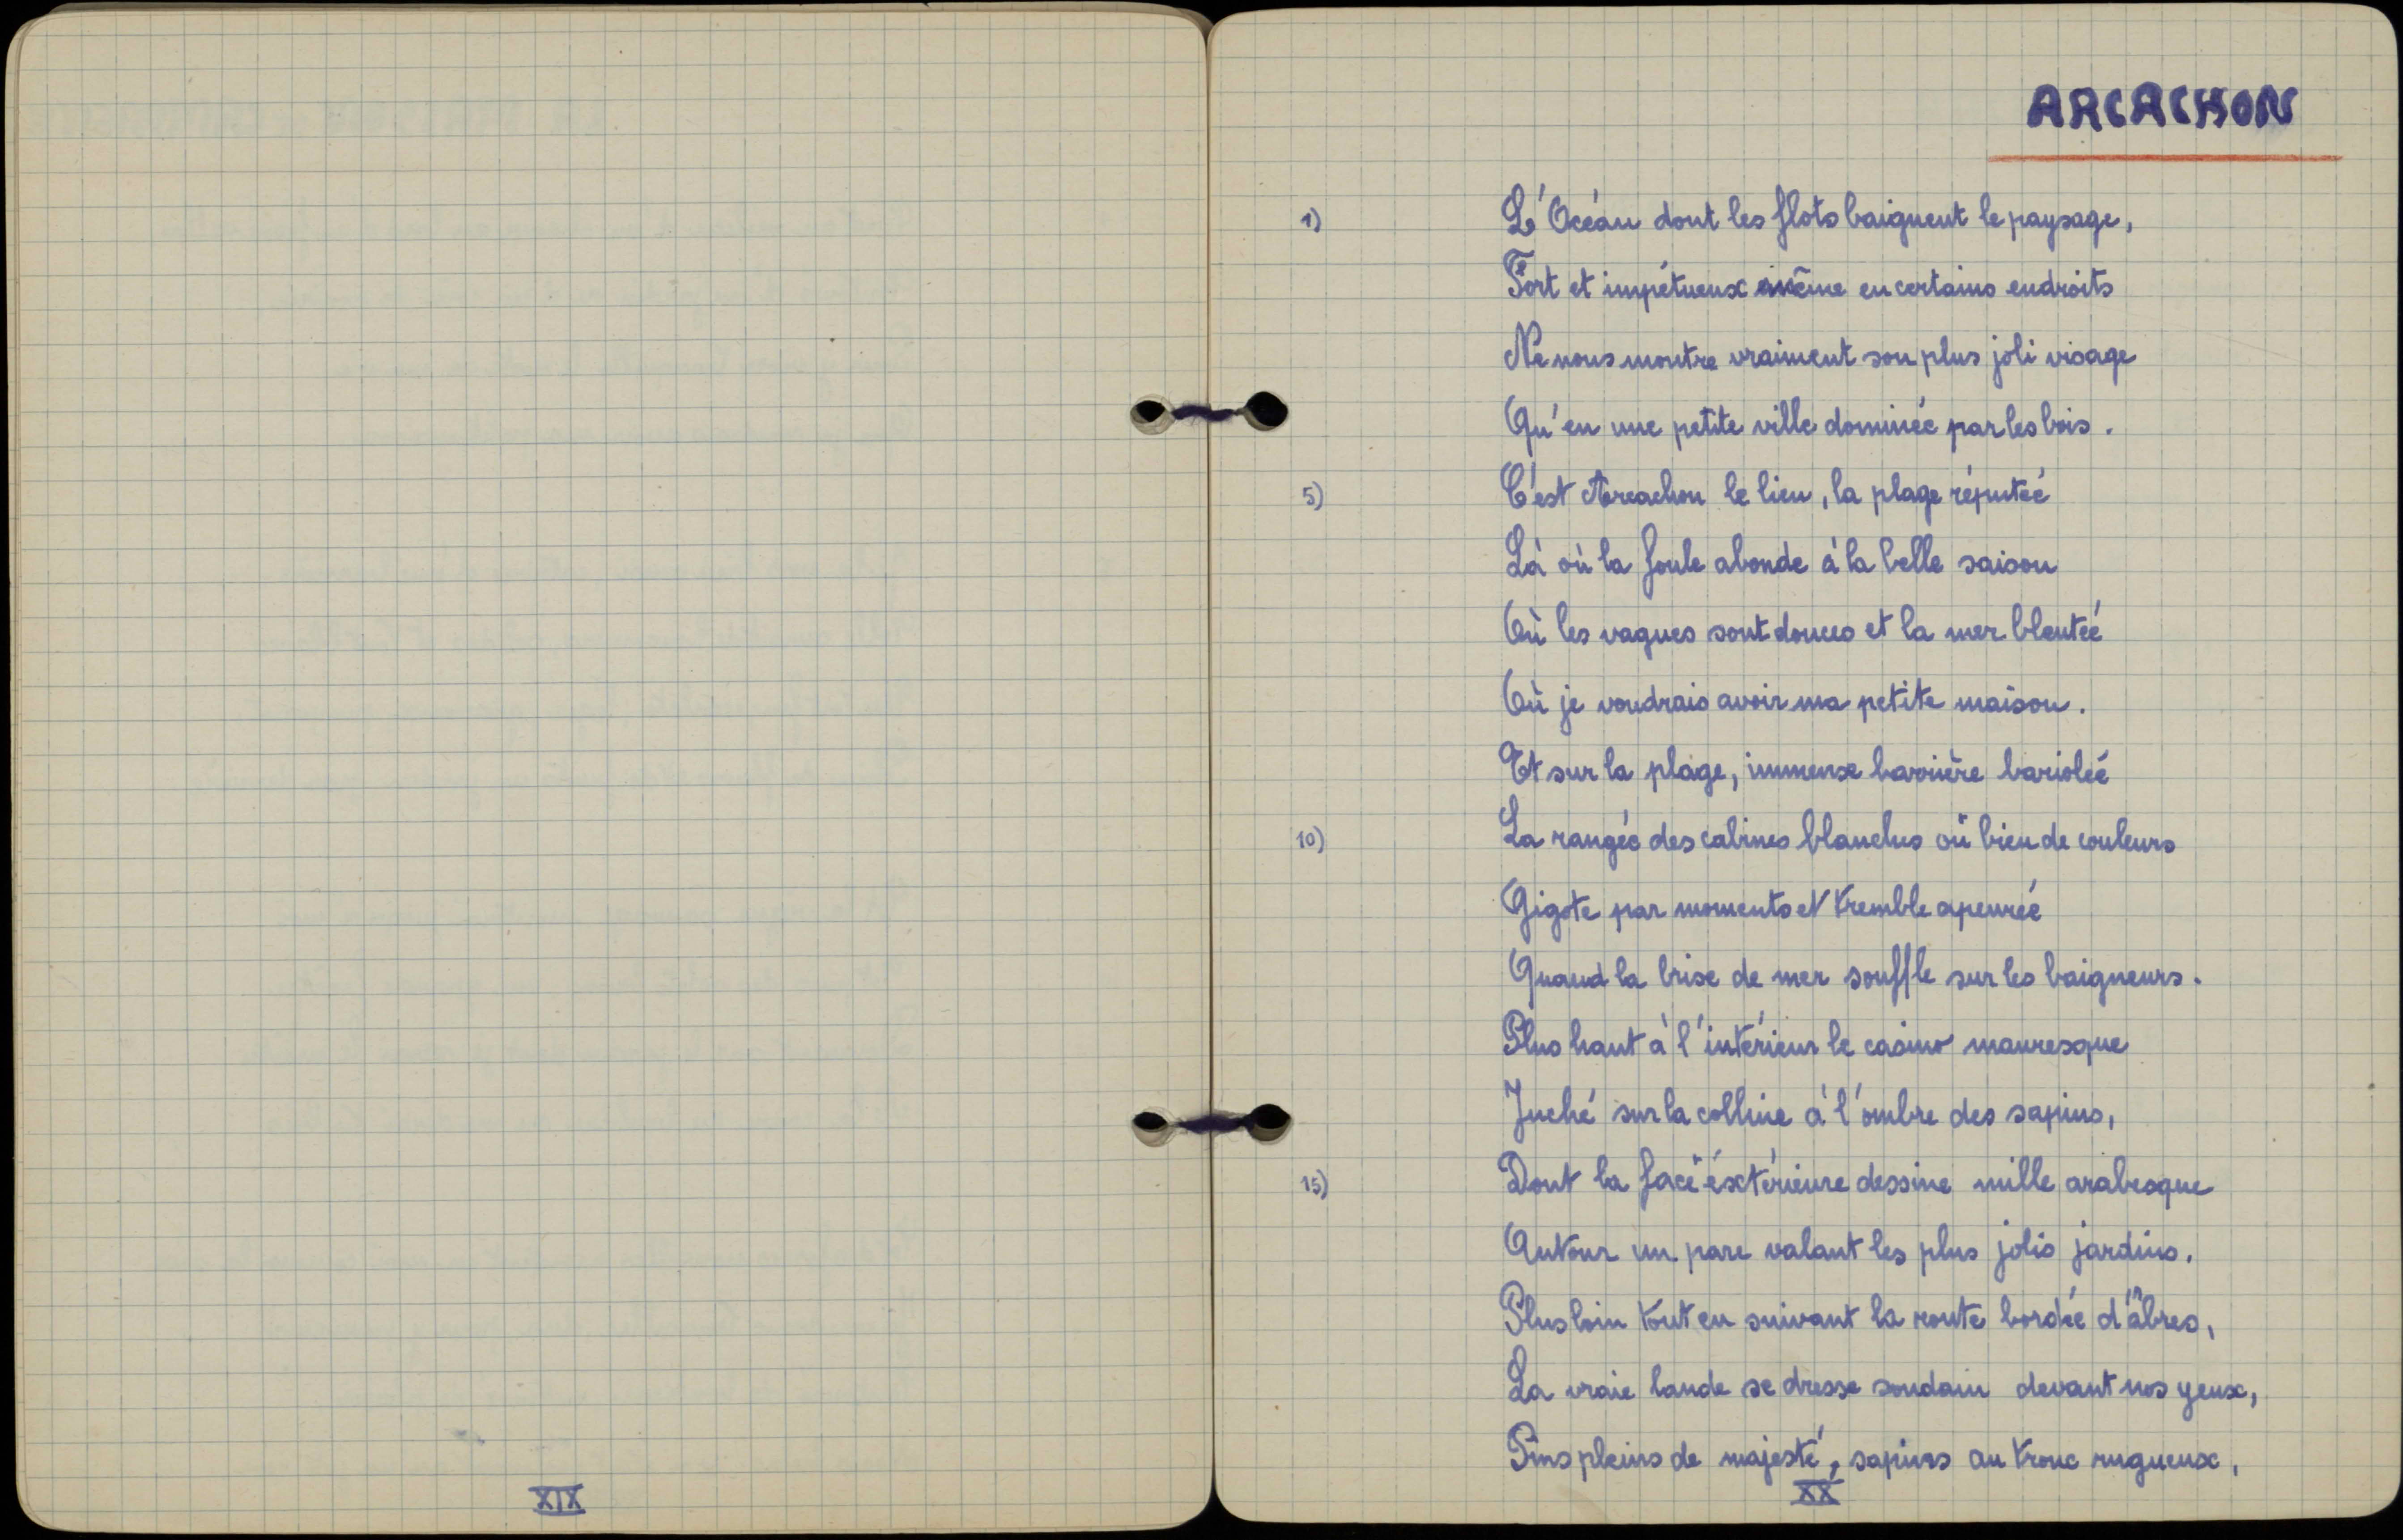 ARCACHON
1) L'Océan dont les flots baignent le paysage,
Fort et impétueux même en certains endroits
Ne nous montre vraiment son plus joli visage
Qu'en une petite ville dominée par les bois.
5) C'est Arcachon le lieu, la plage réputée
Là où la foule abonde à la belle saison
Où les vagues sont douces et la mer bleutée
Où je voudrais avoir ma petite maison.
Et sur la plage, immense barrière bariolée
10) La rangée des cabines blanches où bien de couleurs
Gigote par moments et tremble apeurée
Quand la brise de mer souffle sur les baigneurs.
Plus haut à l'intérieur le casino mauresque
Juché sur la colline à l'ombre des sapins,
15) Dont la face éxtérieure dessine mille arabesque
Autour un parc valant les plus jolis jardins.
Plus loin tout en suivant la route bordée d'âbres,
La vraie lande se dresse soudain devant nos yeux,
Pins pleins de majesté, sapins au tronc rugueux,
XIX
XX